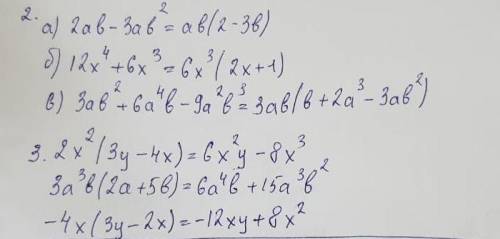 2.
а) 2ab - 3ab² = ab(2 - 3b)
б) 12x⁴ + 6x³ = 6x³(2x + 1)
в) 3ab² + 6a⁴b - 9a²b³ = 3ab(b + 2a³ - 3ab²)
3. 2x²(3y - 4x) = 6x²y - 8x³
3a³b(2a + 5b) = 6a⁴b + 15a³b²
-4x(3y - 2x) = -12xy + 8x²